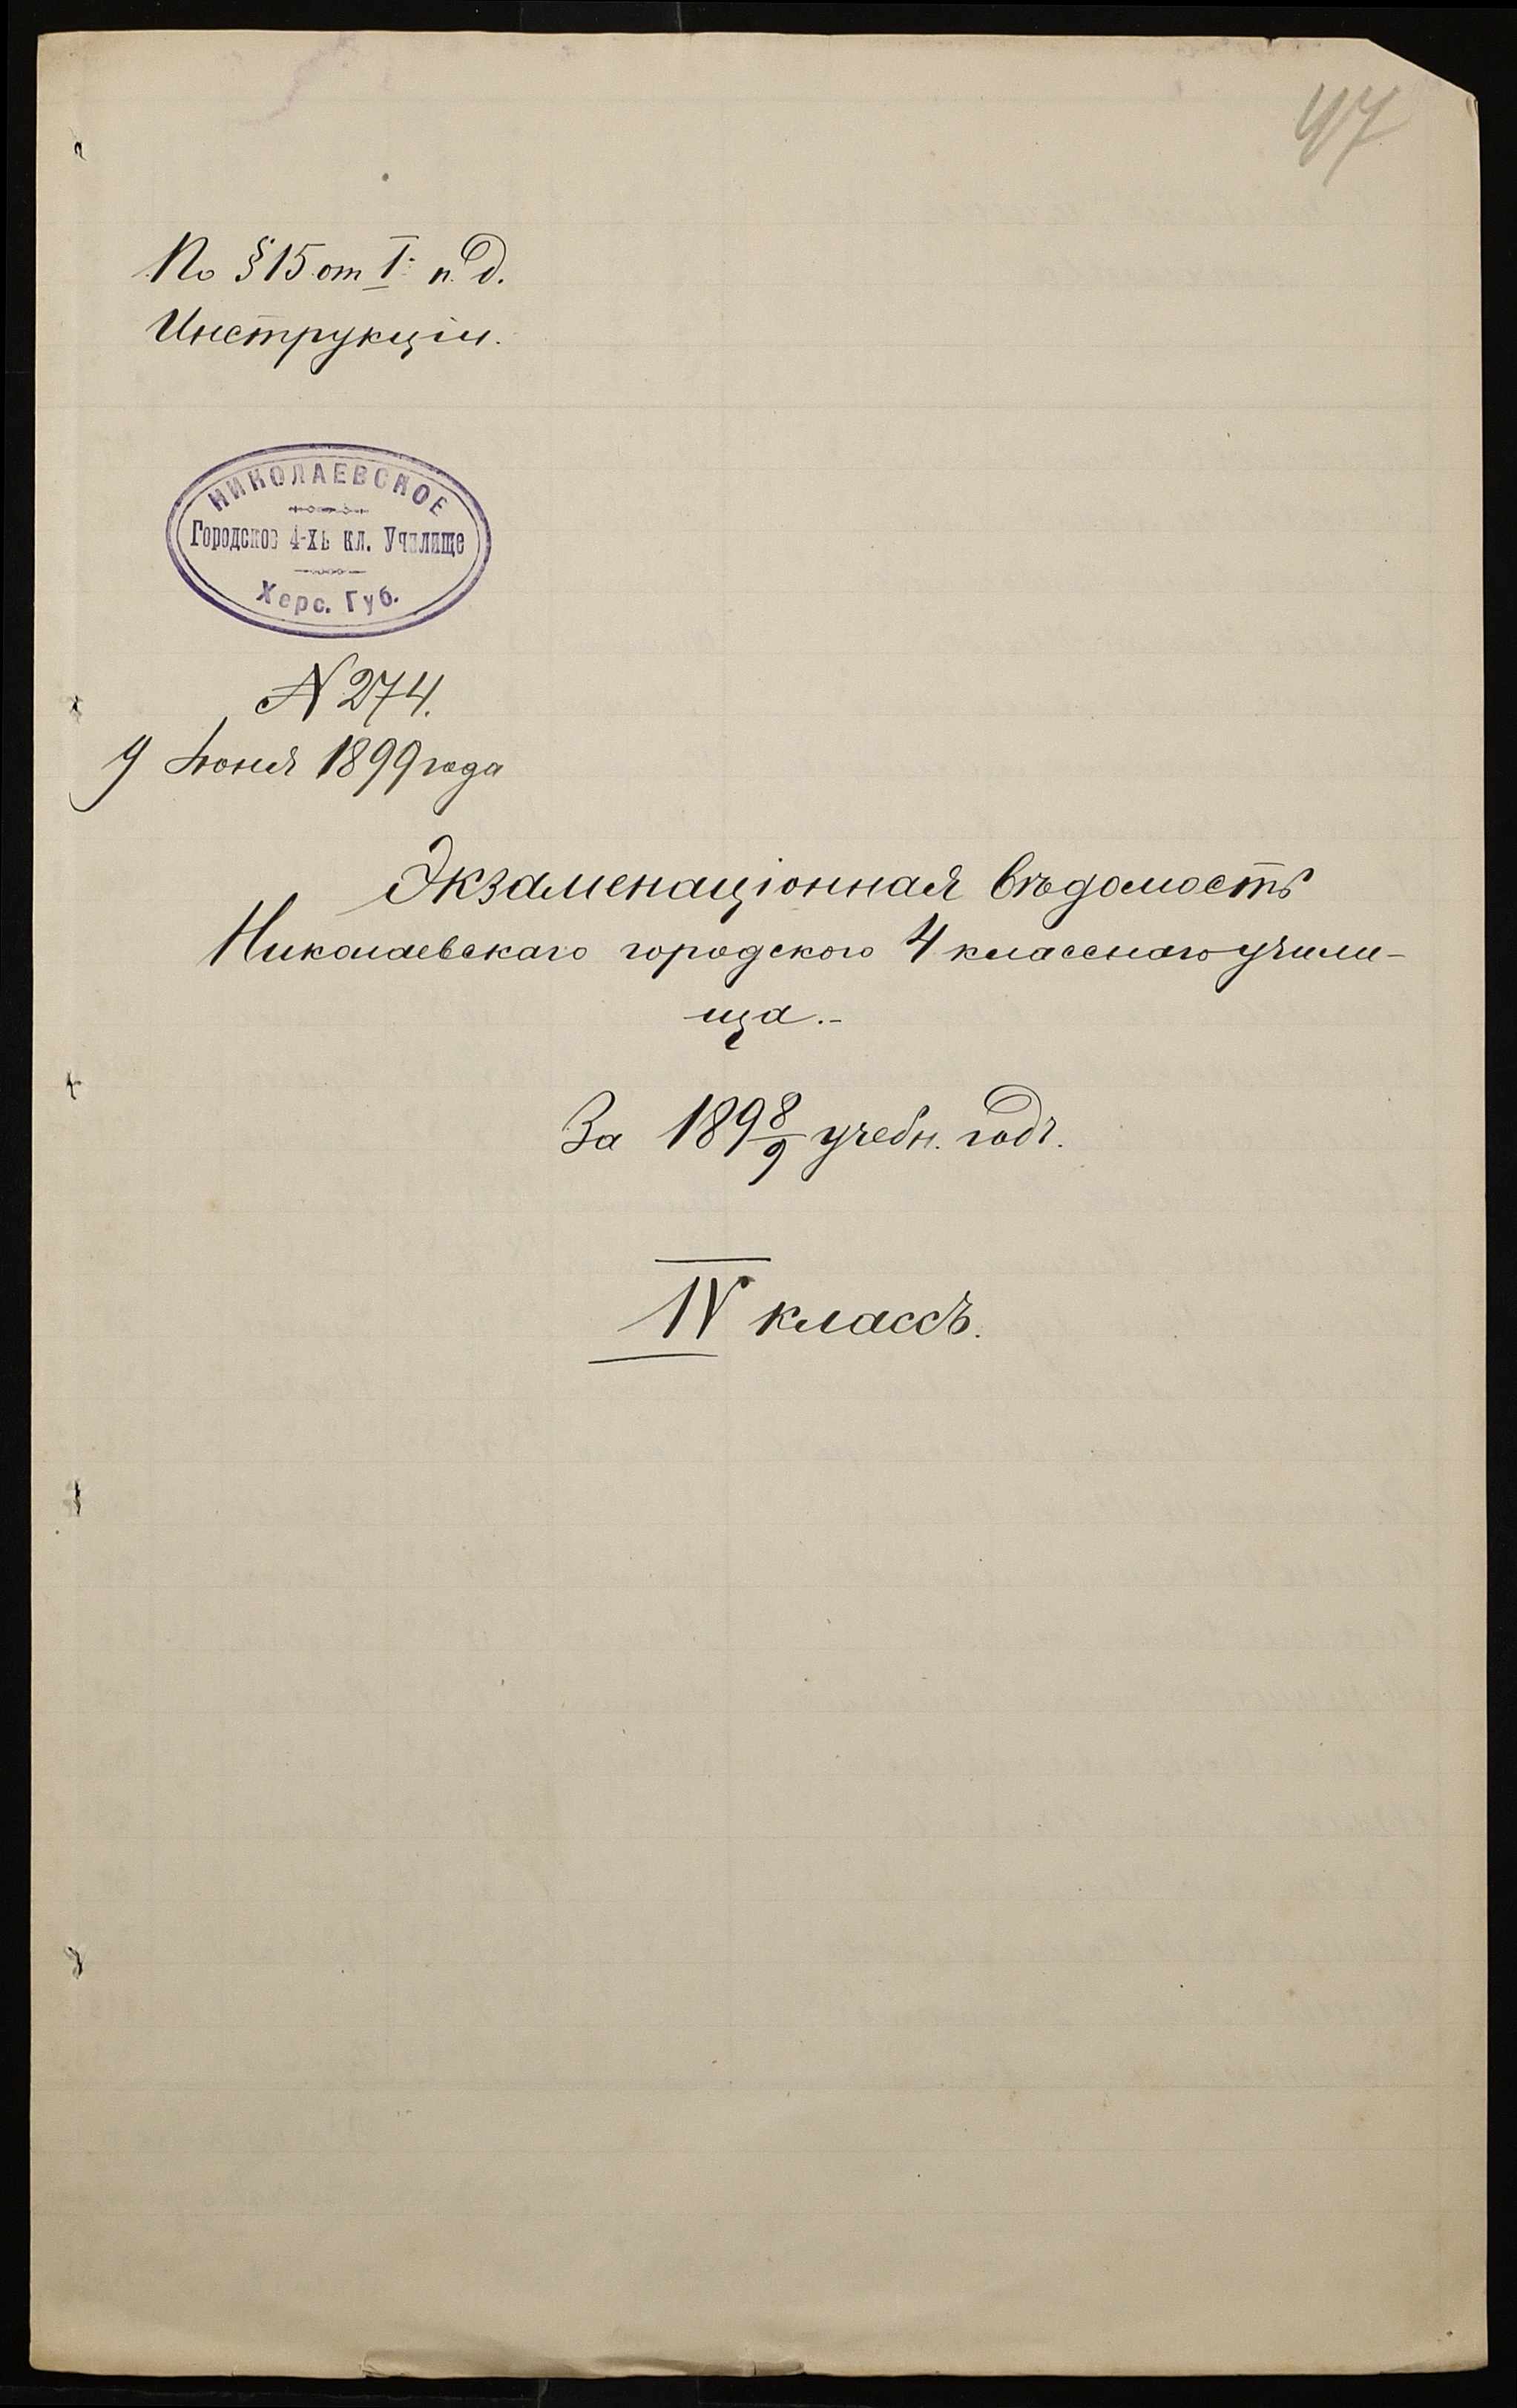 47
По § 15 от I: п. д.
Инструкціи.
НИКОЛАЕВСКОЕ
Городское 4-хъ кл. Училище
Херс. Губ.
№ 274.
9 Іюня 1899 года
Экзаменаціонная вѣдомость
Николаевскаго городского 4 класснаго учили-
ща.-
За 1898/9 учебн. годъ.
IV классъ.